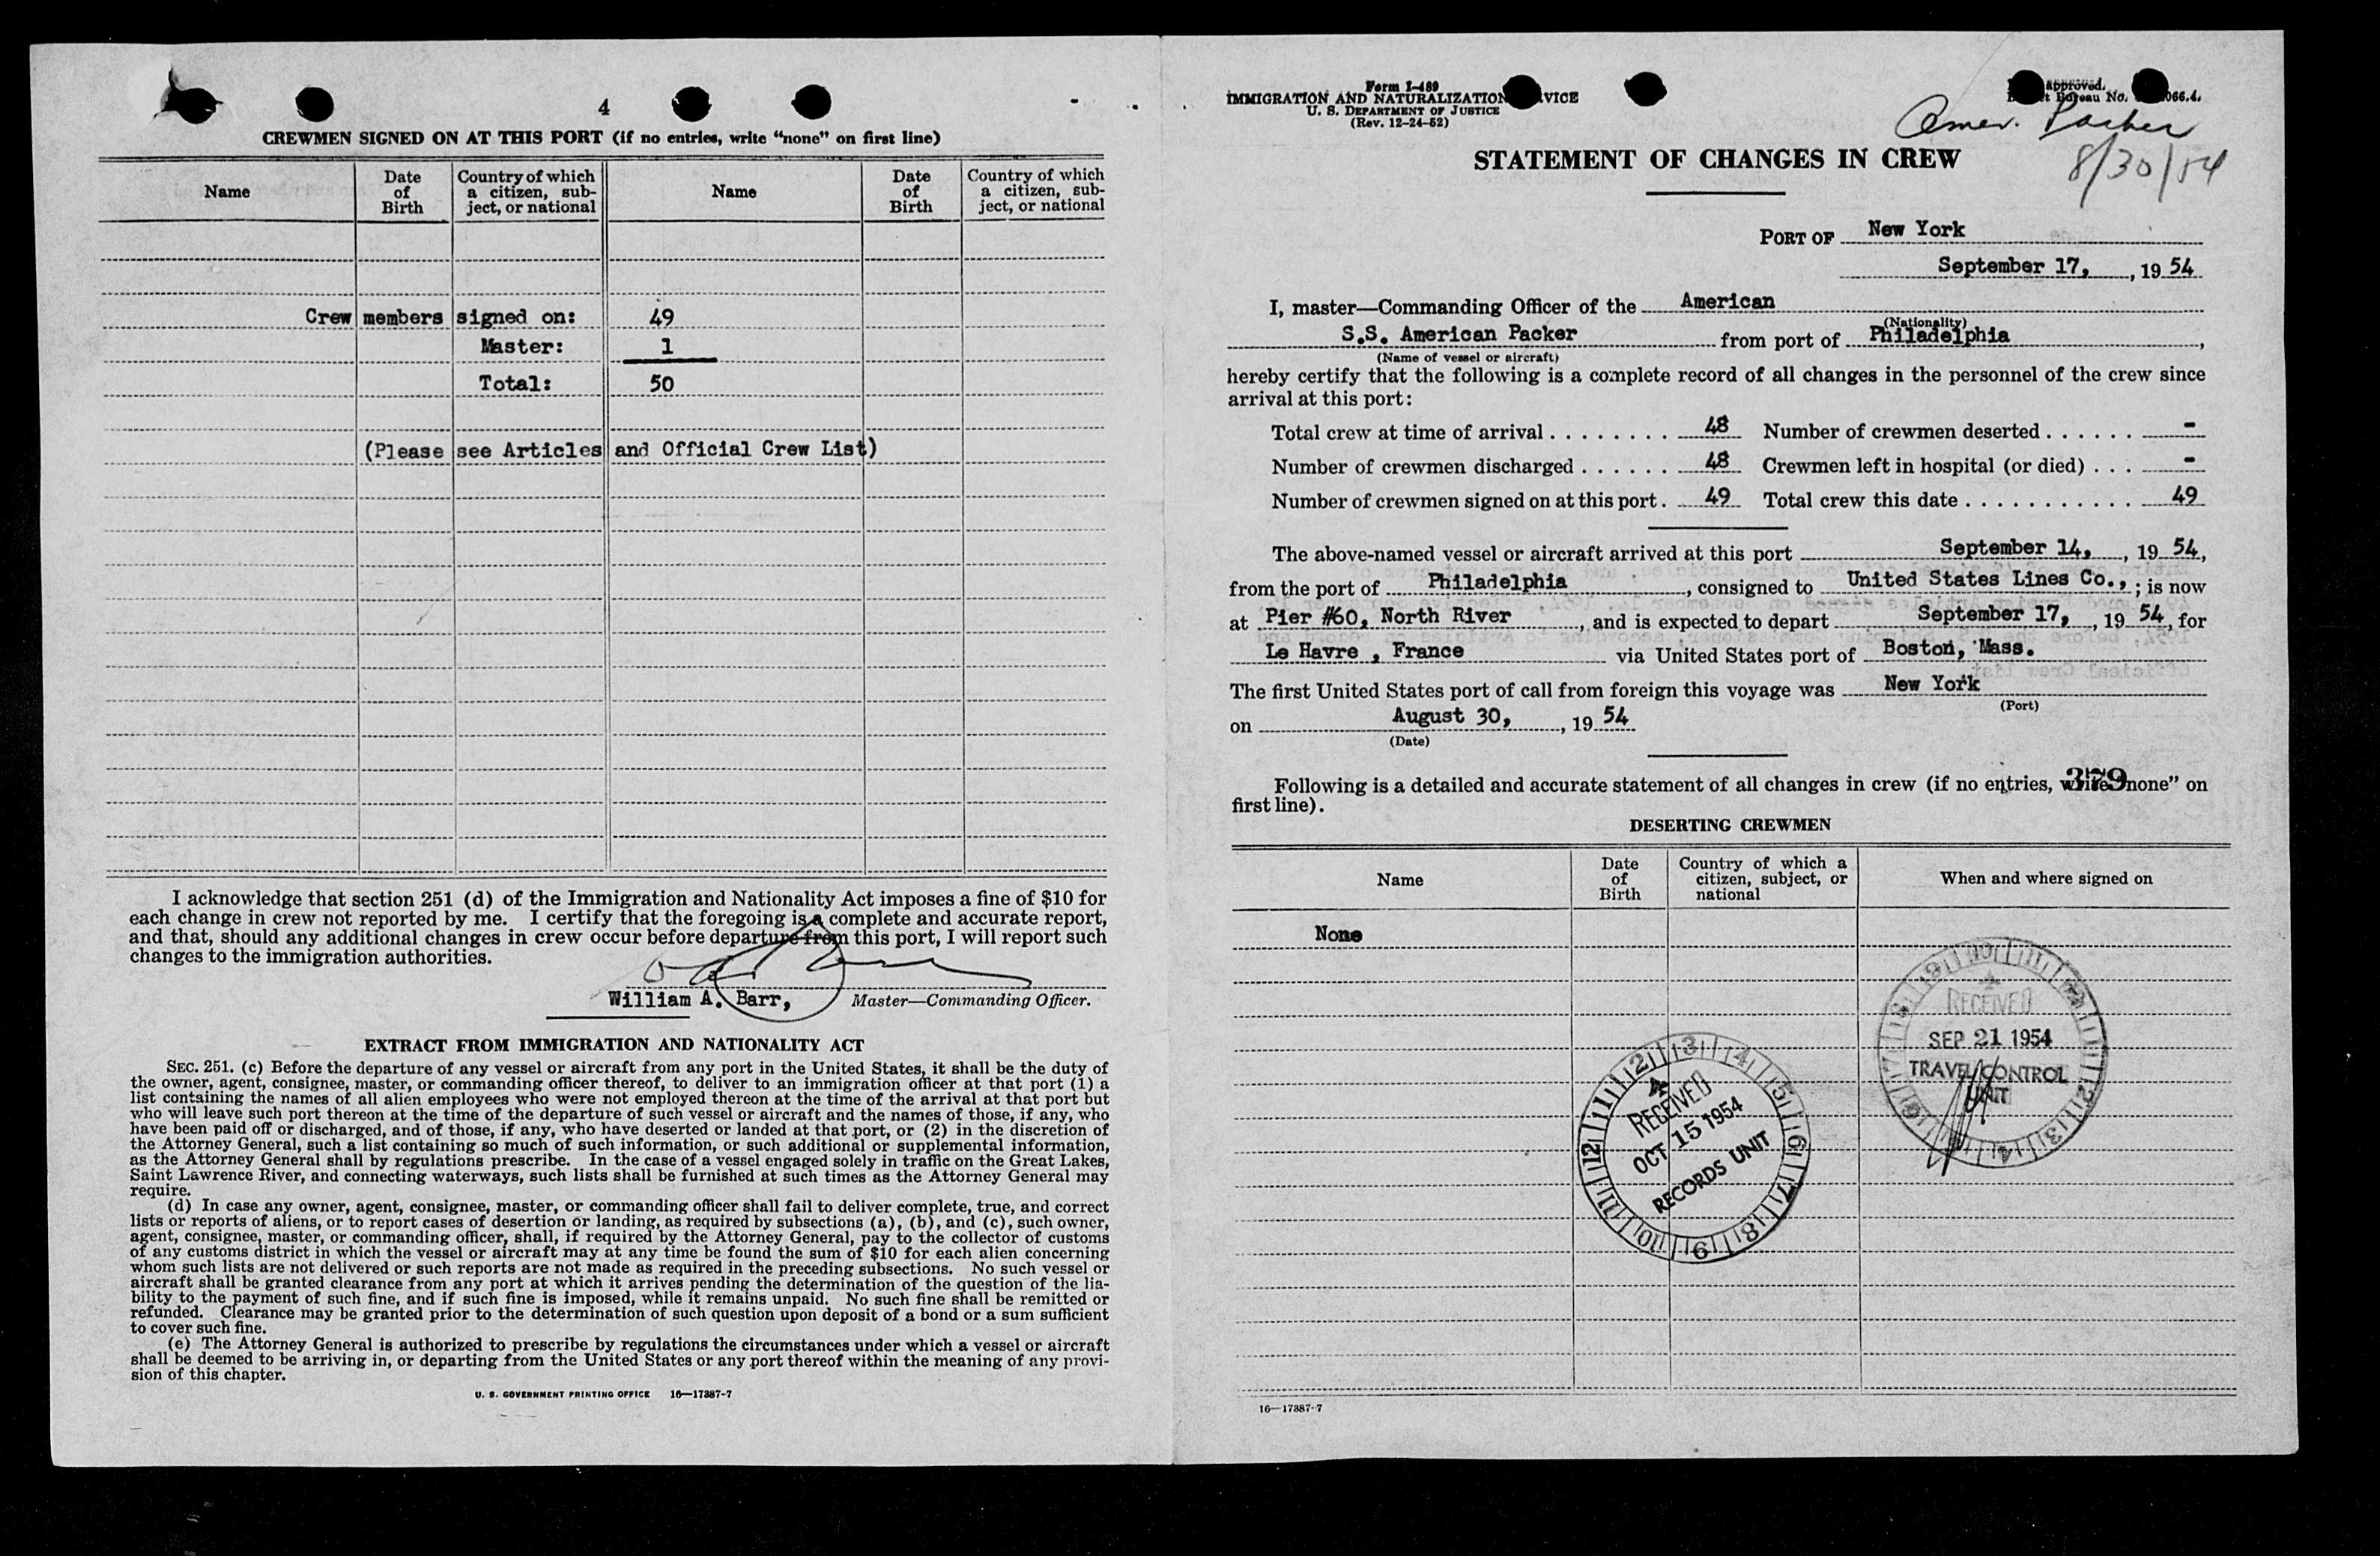 4
CREWMEN SIGNED ON AT THIS PORT (if no entries, write "none" on first line)
Name
Date of Birth
Country of which a citizen, sub-ject, or national
Name
Date of Birth
Country of which a citizen, sub-ject, or national
Crew members signed on: 49
Master: 1
Total: 50
(Please see Articles and Official Crew List)
I acknowledge that section 251 (d) of the Immigration and Nationality Act imposes a fine of $10 for
each change in crew not reported by me. I certify that the foregoing is a complete and accurate report,
and that, should any additional changes in crew occur before departure from this port, I will report such
changes to the immigration authorities.
William A. Barr, Master—Commanding Officer.
EXTRACT FROM IMMIGRATION AND NATIONALITY ACT
SEC. 251. (c) Before the departure of any vessel or aircraft from any port in the United States, it shall be the duty of
the owner, agent, consignee, master, or commanding officer thereof, to deliver to an immigration officer at that port (1) a
list containing the names of all alien employees who were not employed thereon at the time of the arrival at that port but
who will leave such port thereon at the time of the departure of such vessel or aircraft and the names of those, if any, who
have been paid off or discharged, and of those, if any, who have deserted or landed at that port, or (2) in the discretion of
the Attorney General, such a list containing so much of such information, or such additional or supplemental information,
as the Attorney General shall by regulations prescribe. In the case of a vessel engaged solely in traffic on the Great Lakes,
Saint Lawrence River, and connecting waterways, such lists shall be furnished at such times as the Attorney General may
require.
(d) In case any owner, agent, consignee, master, or commanding officer shall fail to deliver complete, true, and correct
lists or reports of aliens, or to report cases of desertion or landing, as required by subsections (a), (b), and (c), such owner,
agent, consignee, master, or commanding officer, shall, if required by the Attorney General, pay to the collector of customs
of any customs district in which the vessel or aircraft may at any time be found the sum of $10 for each alien concerning
whom such lists are not delivered or such reports are not made as required in the preceding subsections. No such vessel or
aircraft shall be granted clearance from any port at which it arrives pending the determination of the question of the lia-
bility to the payment of such fine, and if such fine is imposed, while it remains unpaid. No such fine shall be remitted or
refunded. Clearance may be granted prior to the determination of such question upon deposit of a bond or a sum sufficient
to cover such fine.
(e) The Attorney General is authorized to prescribe by regulations the circumstances under which a vessel or aircraft
shall be deemed to be arriving in, or departing from the United States or any port thereof within the meaning of any provi-
sion of this chapter.
U. S. GOVERNMENT PRINTING OFFICE 16—17387-7
Form I-489
IMMIGRATION AND NATURALIZATION VICE
U. S. DEPARTMENT OF JUSTICE
(Rev. 12-24-52)
approved.
Bureau No. 066.4.
Amer. Packer
8/30/54
STATEMENT OF CHANGES IN CREW
PORT OF New York
September 17, , 19 54
I, master—Commanding Officer of the American
(Nationality)
S.S. American Packer from port of Philadelphia ,
(Name of vessel or aircraft)
hereby certify that the following is a complete record of all changes in the personnel of the crew since
arrival at this port:
Total crew at time of arrival . . . . . . . . 48 Number of crewmen deserted . . . . . . -
Number of crewmen discharged . . . . . . 48 Crewmen left in hospital (or died) . . . -
Number of crewmen signed on at this port . 49 Total crew this date . . . . . . . . . . . 49
The above-named vessel or aircraft arrived at this port September 14, , 19 54,
from the port of Philadelphia , consigned to United States Lines Co., ; is now
at Pier #60, North River , and is expected to depart September 17, , 19 54, for
Le Havre , France via United States port of Boston, Mass.
The first United States port of call from foreign this voyage was New York
(Port)
on August 30, , 19 54
(Date)
379
Following is a detailed and accurate statement of all changes in crew (if no entries, write "none" on
first line).
DESERTING CREWMEN
Name
Date of Birth
Country of which a citizen, subject, or national
When and where signed on
None
RECEIVED
SEP 21 1954
TRAVEL CONTROL
UNIT
RECEIVED
OCT 15 1954
RECORDS UNIT
16—17387-7